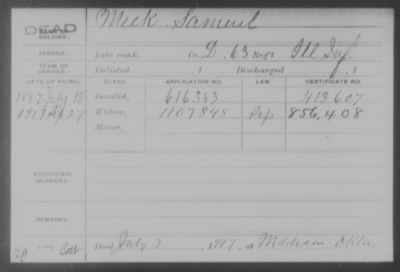 DEAD Meek Samuel
SOLDIER:
SERVICE: Late rank, Co. D, 63 Reg't Ill Inf.
TERM OF SERVICE: Enlisted , 1 Discharged , 1
DATE OF FILING. CLASS. APPLICATION NO. LAW. CERTIFICATE NO.
1887 July 18 Invalid, 616383 413607
1917 27 Widow, 1107845 856,408
Minor,
ADDITIONAL SERVICES:
REMARKS:
Died July 2 1917, at Madison Okla.